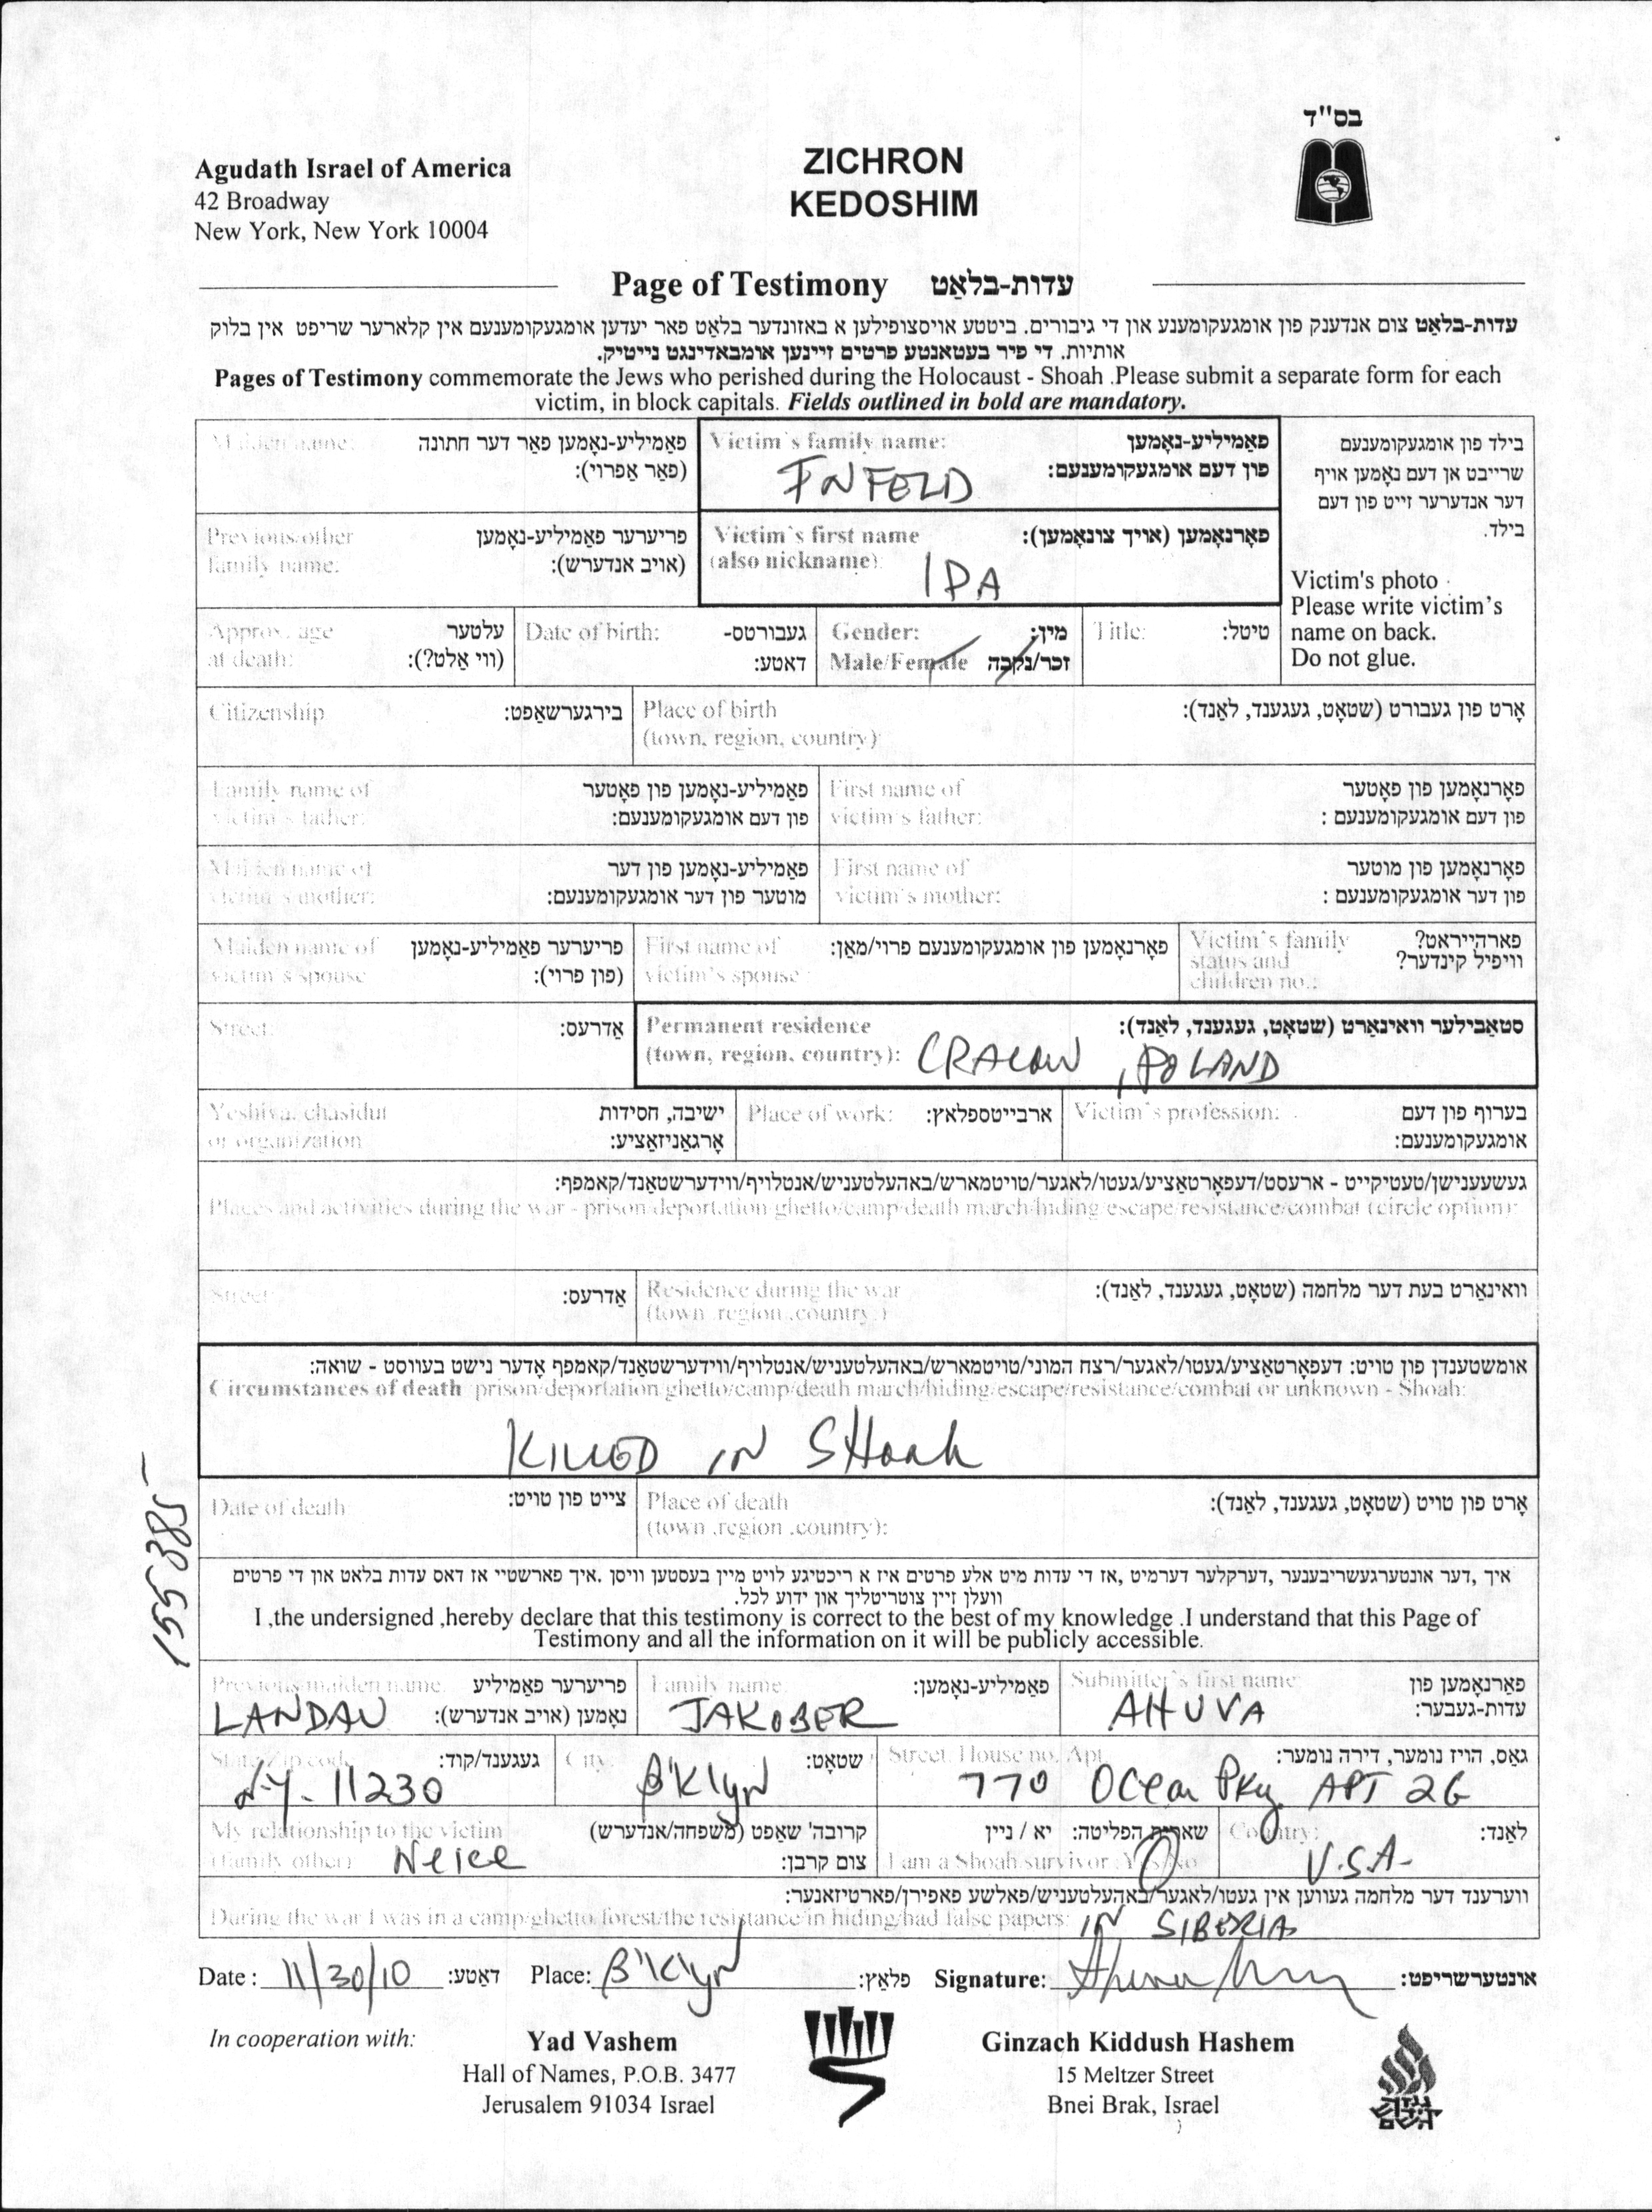 בס"ד
Agudath Israel of America
42 Broadway
New York, New York 10004
ZICHRON
KEDOSHIM
Page of Testimony עדות-בלאַט
עדות-בלאַט צום אנדענק פון אומגעקומענע און די גיבורים. ביטטע אויסצופילען א באזונדער בלאַט פאר יעדען אומגעקומענעם אין קלארער שריפט אין בלוק
אותיות. די פיר בעטאנטע פרטים זיינען אומבאדינגט נייטיק.
Pages of Testimony commemorate the Jews who perished during the Holocaust - Shoah .Please submit a separate form for each
victim, in block capitals. Fields outlined in bold are mandatory.
Maiden name: פאַמיליע-נאָמען פאַר דער חתונה
(פאַר אַפרוי):
Victim's family name: פאַמיליע-נאָמען
פון דעם אומגעקומענעם:
FNFELD
בילד פון אומגעקומענעם
שרייבט אן דעם נאָמען אויף
דער אנדערער זייט פון דעם
בילד.
Previous/other פריערער פאַמיליע-נאָמען
family name: (אויב אנדערש):
Victim's first name פאָרנאָמען (אויך צונאָמען):
(also nickname):
IDA
Victim's photo
Please write victim's
name on back.
Do not glue.
Approx. age עלטער
at death: (ווי אַלט?):
Date of birth: געבורטס-
דאטע:
Gender: מין:
Male/Female זכר/נקבה
Title: טיטל:
Citizenship בירגערשאַפט:
Place of birth אָרט פון געבורט (שטאָט, געגענד, לאַנד):
(town, region, country)
Family name of פאַמיליע-נאָמען פון פאָטער
victim's father: פון דעם אומגעקומענעם:
First name of פאָרנאָמען פון פאָטער
victim's father: פון דעם אומגעקומענעם :
Maiden name of פאַמיליע-נאָמען פון דער
victim's mother: מוטער פון דער אומגעקומענעם:
First name of פאָרנאָמען פון מוטער
victim's mother: פון דער אומגעקומענעם :
Maiden name of פריערער פאַמיליע-נאָמען
victim's spouse (פון פרוי):
First name of פאָרנאָמען פון אומגעקומענעם פרוי/מאַן:
victim's spouse
Victim's family פארהייראט?
status and וויפיל קינדער?
children no.:
Street: אַדרעס:
Permanent residence סטאַבילער וואינאַרט (שטאָט, געגענד, לאַנד):
(town, region, country): CRACOW, POLAND
Yeshiva, chasidut ישיבה, חסידות
or organization אָרגאַניזאַציע:
Place of work: ארבייטספלאץ:
Victim's profession: בערוף פון דעם
אומגעקומענעם:
געשעענישן/טעטיקייט - ארעסט/דעפאָרטאַציע/געטו/לאגער/טויטמארש/באהעלטעניש/אנטלויף/ווידערשטאַנד/קאמפף:
Places and activities during the war - prison/deportation/ghetto/camp/death march/hiding/escape/resistance/combat (circle option):
Street: אַדרעס:
Residence during the war וואינאַרט בעת דער מלחמה (שטאָט, געגענד, לאַנד):
(town .region .country )
אומשטענדן פון טויט: דעפאָרטאַציע/געטו/לאגער/רצח המוני/טויטמארש/באהעלטעניש/אנטלויף/ווידערשטאַנד/קאמפף אָדער נישט בעוווסט - שואה:
Circumstances of death prison/deportation/ghetto/camp/death march/hiding/escape/resistance/combat or unknown - Shoah:
KILLED IN SHoah
Date of death צייט פון טויט:
Place of death אָרט פון טויט (שטאָט, געגענד, לאַנד):
(town .region .country):
155385
איך ,דער אונטערגעשריבענער ,דערקלער דערמיט ,אז די עדות מיט אלע פרטים איז א ריכטיגע לויט מיין בעסטען וויסן .איך פארשטיי אז דאס עדות בלאט און די פרטים
וועלן זיין צוטריטליך און ידוע לכל.
I ,the undersigned ,hereby declare that this testimony is correct to the best of my knowledge .I understand that this Page of
Testimony and all the information on it will be publicly accessible.
Previous/maiden name: פריערער פאַמיליע
LANDAU נאָמען (אויב אנדערש):
Family name: פאַמיליע-נאָמען:
JAKOBER
Submitter's first name: פאַרנאָמען פון
AHUVA עדות-געבער:
State/Zip code געגענד/קוד:
N.Y. 11230
City שטאָט:
B'Klyn
Street, House no. Apt גאַס, הויז נומער, דירה נומער:
770 Ocean Pky APT 2G
My relationship to the victim קרובה' שאפט (משפחה/אנדערש)
(family/other) Neice צום קרבן:
שארית הפליטה: יא / ניין
I am a Shoah survivor: Yes/No
Country: לאַנד:
U.S.A-
ווערענד דער מלחמה געווען אין געטו/לאגער/באהעלטעניש/פאלשע פאפירן/פארטיזאנער:
During the war I was in a camp/ghetto/forest/the resistance/in hiding/had false papers: IN SIBERIA
Date : 11/30/10 דאַטע: Place: B'Klyn פלאַץ: Signature: אונטערשריפט:
In cooperation with:
Yad Vashem
Hall of Names, P.O.B. 3477
Jerusalem 91034 Israel
Ginzach Kiddush Hashem
15 Meltzer Street
Bnei Brak, Israel
גנזך
קידוש
השם